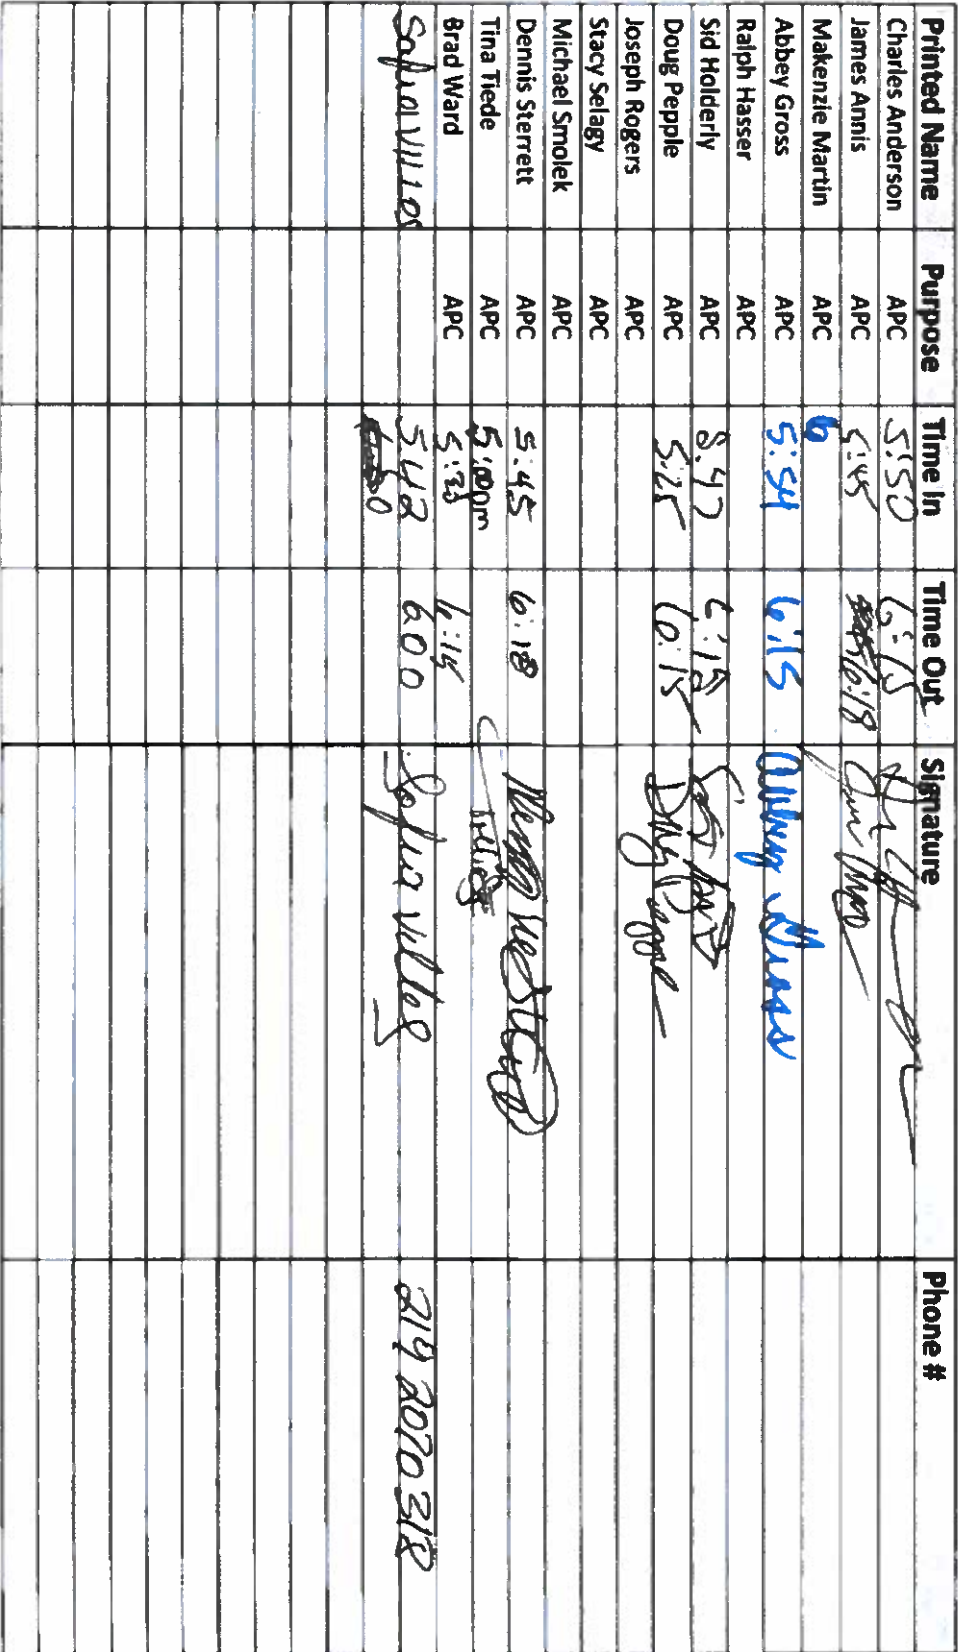 Printed Name Purpose Time In Time Out Signature Phone #
Charles Anderson APC 5:50 6:15
James Annis APC 5:45 6:18
Makenzie Martin APC 6
Abbey Gross APC 5:54 6:15 Abbey Gross
Ralph Hasser APC
Sid Holderly APC 6:15
Doug Pepple APC 5:25 6:15 Doug Pepple
Joseph Rogers APC
Stacy Selagy APC
Michael Smolek APC
Dennis Sterrett APC 5:45 6:18
Tina Tiede APC 5:00pm
Brad Ward APC 6:15
Sofia Villos 542 600 Sofia Villes 219 2070318